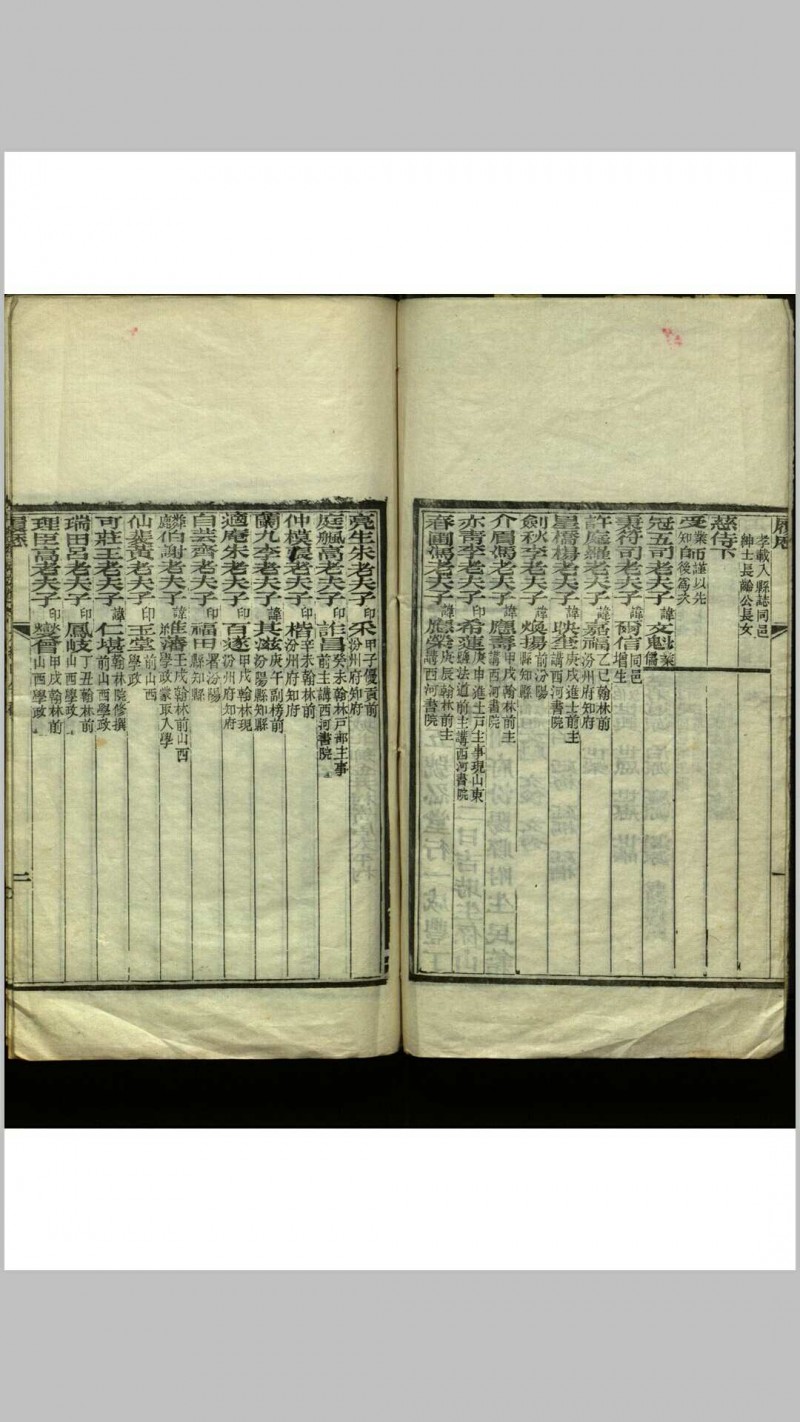 履歷
孝載入縣誌同邑
紳士長齡公長女
慈侍下
受業師謹以先
知自後爲次
冠五司老夫子諱文魁業儒
裏符司老夫子諱爾信同邑增生
許庭羅老夫子諱嘉福乙巳翰林前汾州府知府
星橋楊老夫子諱映奎庚戌進士前主講西河書院
劍秋李老夫子諱煥揚前汾陽縣知縣
介眉馮老夫子印應壽甲戌翰林前主講西河書院
亦青李老夫子印希蓮庚申進士戶主事現山東鹽法道前主講西河書院
春圃馮老夫子諱應榮庚辰翰林前主講西河書院
一
亮生朱老夫子印采甲子優貢前汾州府知府
庭颿高老夫子印誰昌癸未翰林戶部主事前主講西河書院
仲模袁老夫子印楷辛未翰林前汾州府知府
蘭九李老夫子諱其滋庚午副榜前汾陽縣知縣
適庵朱老夫子印百遂甲戌翰林現汾州府知府
自芸齊老夫子印福田署汾陽縣知縣
麐伯謝老夫子諱維藩壬戌翰林前山西學政蒙取入學
仙裴黃老夫子印玉堂前山西學政
可莊王老夫子諱仁堪翰林院修撰前山西學政
瑞田呂老夫子印鳳岐丁丑翰林前山西學政
理臣高老夫子印燮曾甲戌翰林前山西學政
履歷
二